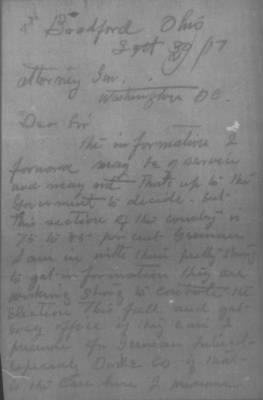 Bradford Ohio
Sept 29 /17
Attorney Gen.
Washington D.C.
Dear Sir
The information I
forward may be of service
and may not That's up to the
Goverment to decide. but
this section of the country is
75 to 85 per cent German
I am in with them pretty strong
to get information they are
working strong to controle the
Election this fall and get
every office if they can I
presume for German
Especially Darke Co if that
is the case here I presume